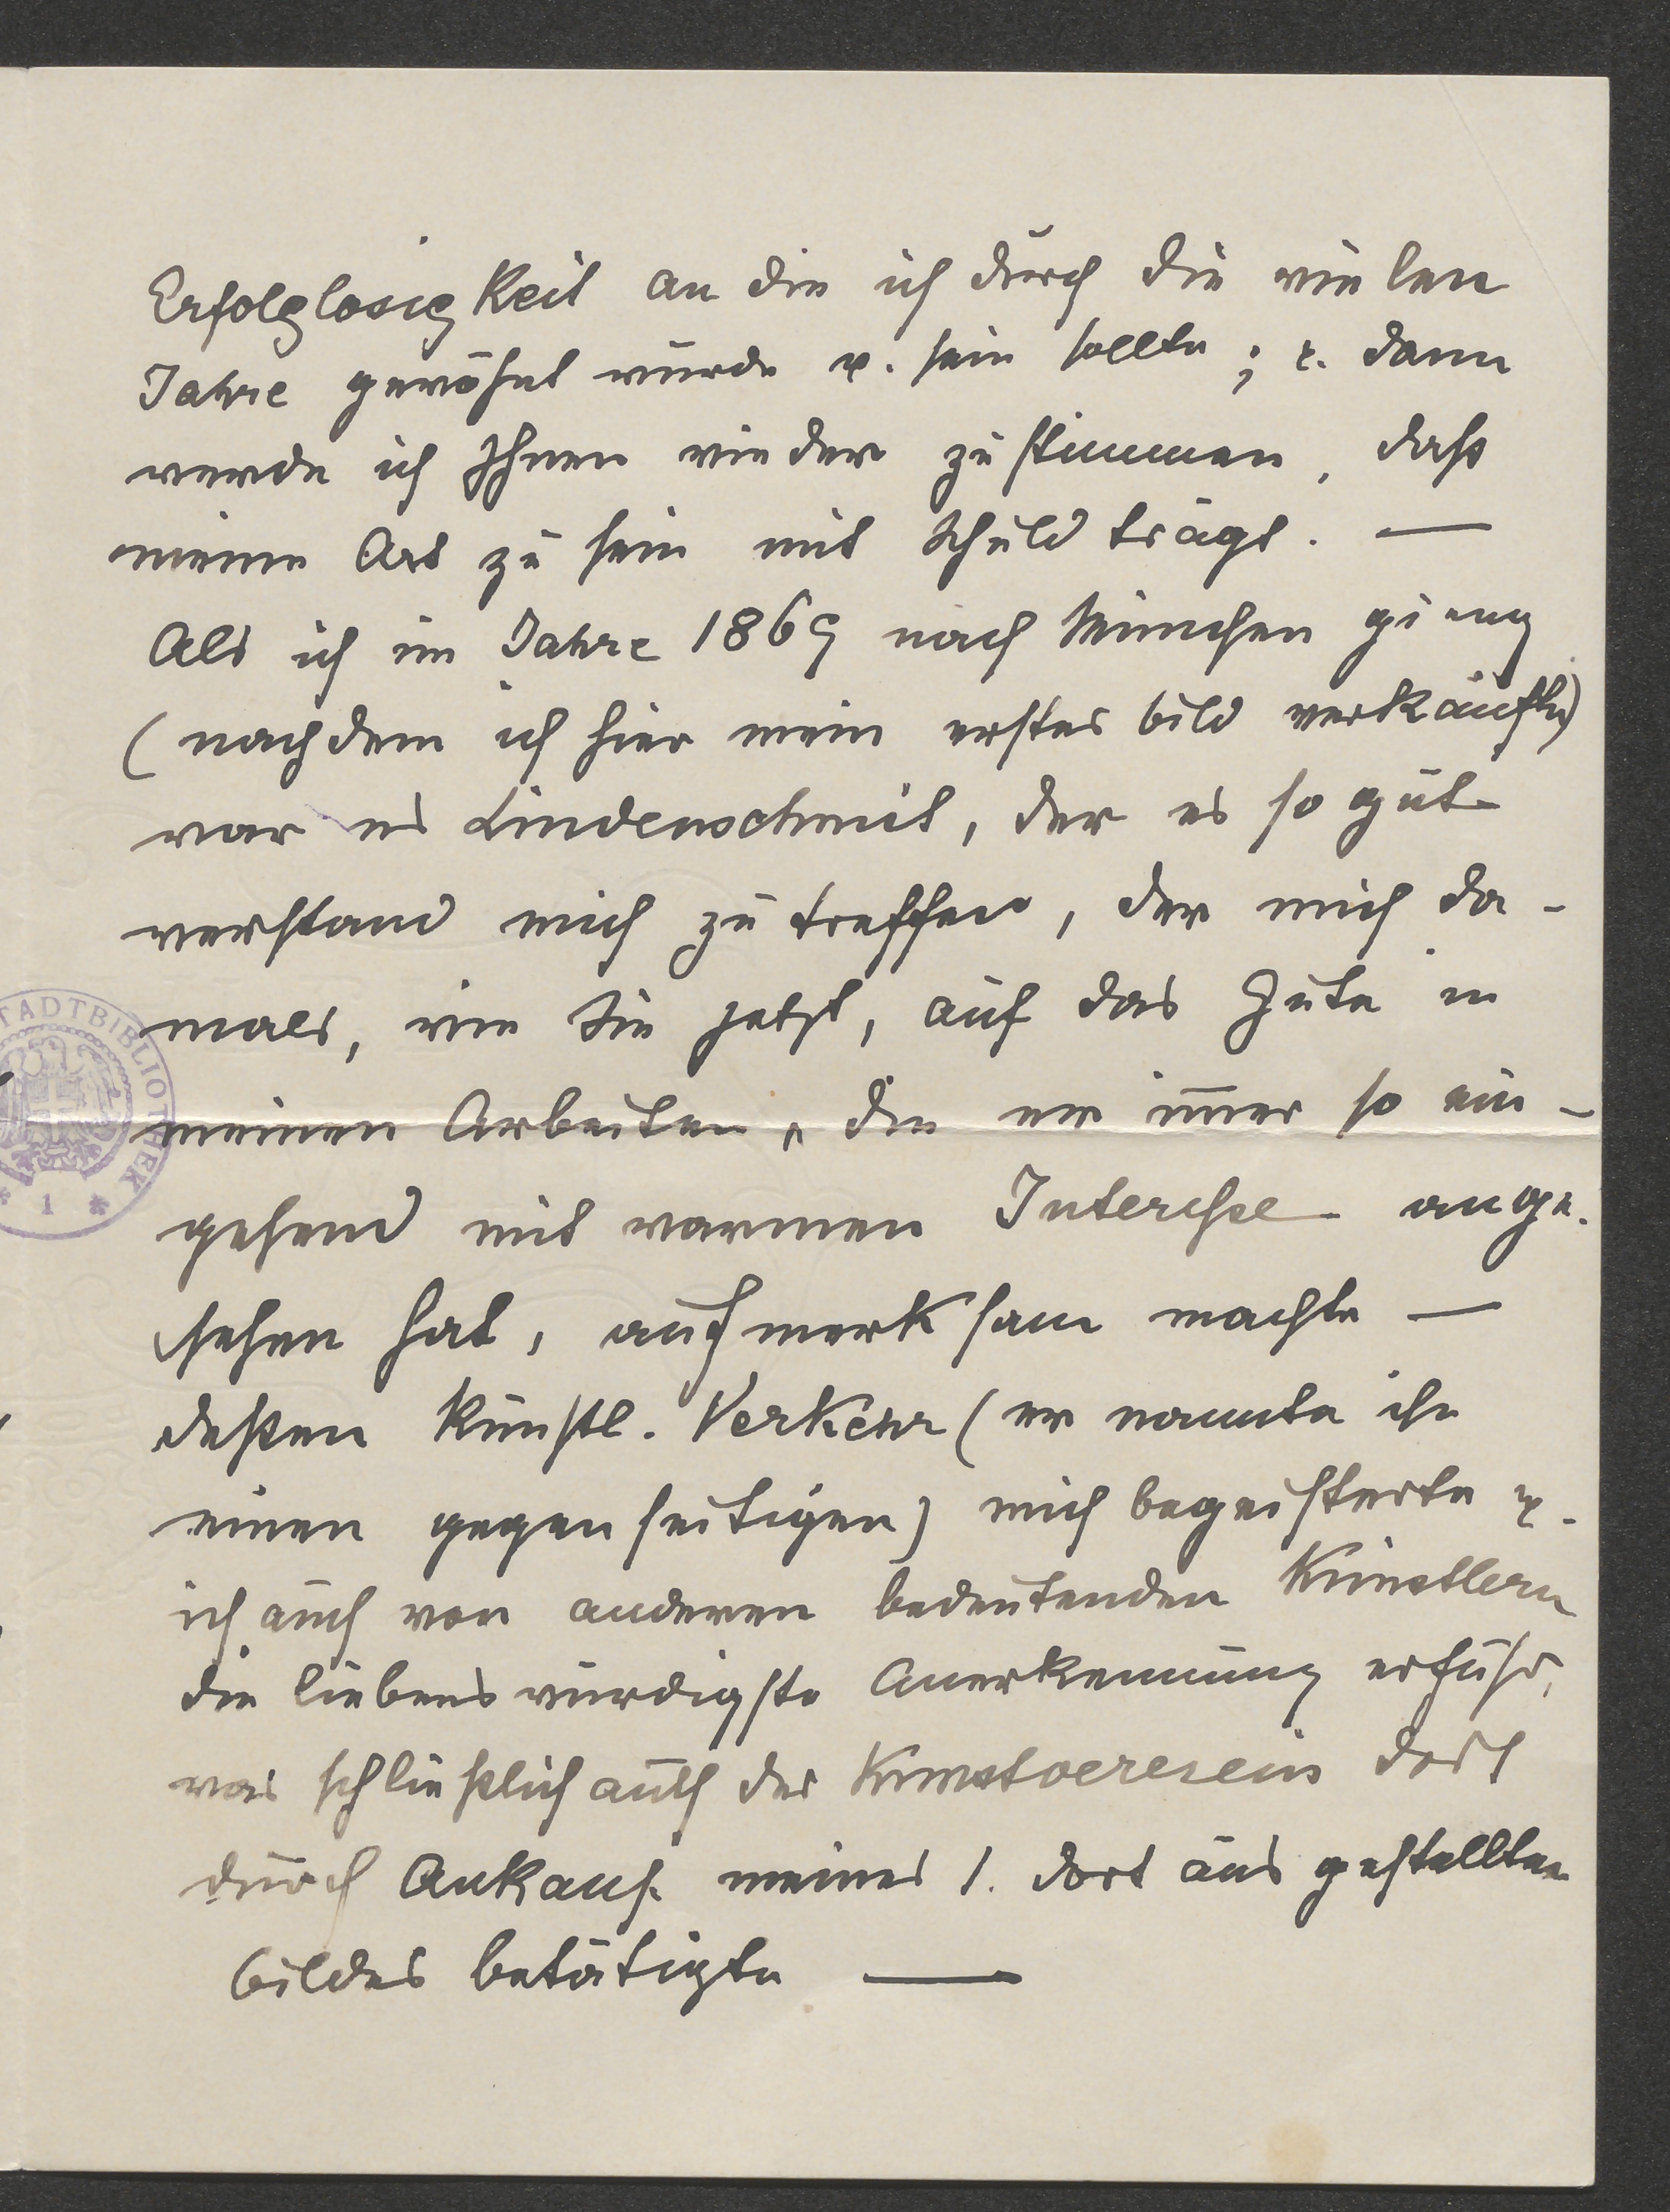 Erfolglosigkeit an die ich durch die vielen
Jahre gewöhnt wurde u. sein sollte; u. dann
werde ich Ihnen wieder zustimmen, daß
meine Art zu sein mit Schuld trägt. —
Als ich im Jahre 1869 nach München gieng
(nachdem ich hier mein erstes Bild verkaufte)
war es Lindenschmit, der es so gut
verstand mich zu treffen, der mich da-
mals, wie Sie jetzt, auf das Gute in
meinen Arbeiten, die er im̅er so ein-
gehend mit warmen Interesse ange-
sehen hat, aufmerksam machte —
deßen künstl. Verkehr (er nannte ihn
einen gegenseitigen) mich begeisterte u.
ich auch von anderen bedeutenden Künstlern
die liebenswürdigste Anerkennung erfuhr,
was schließlich auch der Kunstverein dort
durch Ankauf meines 1. dort ausgestellten
Bildes betätigte —
STADTBIBLIOTHEK
* 1 *